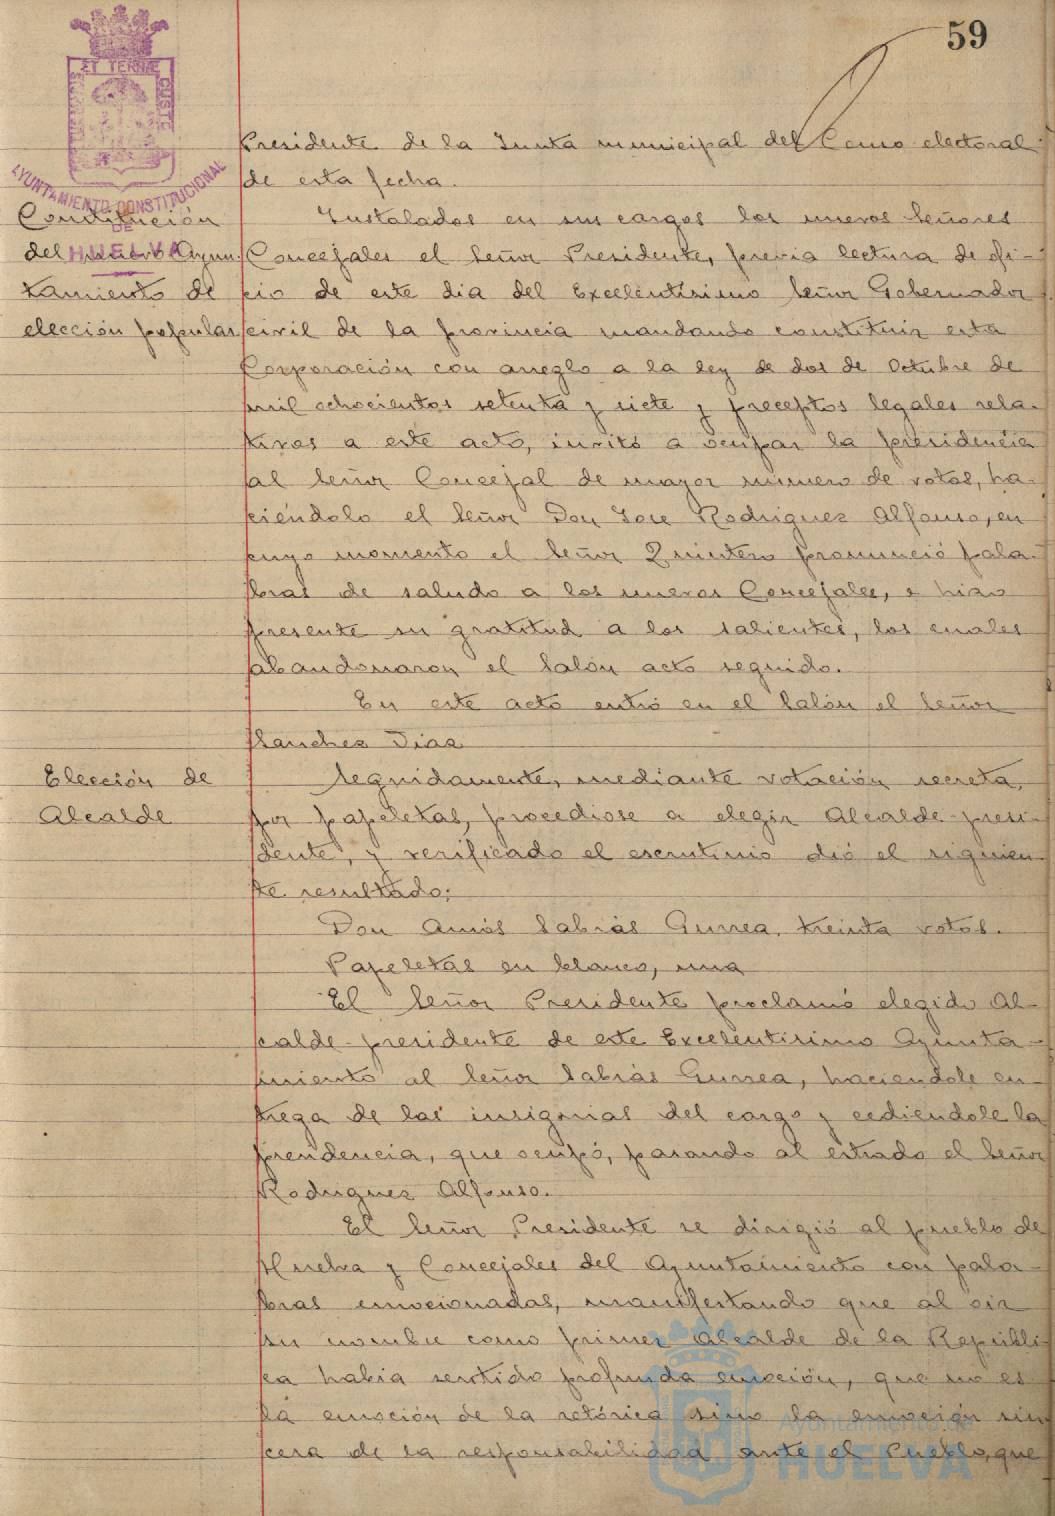 59
ET TERRÆ CUSTODIA
AYUNTAMIENTO CONSTITUCIONAL
DE
HUELVA
Presidente de la Junta municipal del Censo electoral
de esta fecha.
Constitución
del nuevo Ayun-
tamiento de
elección popular
Instalados en sus cargos los nuevos Señores
Concejales el Señor Presidente, previa lectura de ofi-
cio de este dia del Excelentisimo Señor Gobernador
civil de la provincia mandando constituir esta
Corporación con arreglo a la ley de dos de Octubre de
mil ochocientos setenta y siete y preceptos legales rela-
tivos a este acto, invitó a ocupar la presidencia
al Señor Concejal de mayor número de votos, ha-
ciéndolo el Señor Don Jose Rodriguez Alfonso, en
cuyo momento el Señor Quintero pronunció pala-
bras de saludo a los nuevos Concejales, e hizo
presente su gratitud a los salientes, los cuales
abandonaron el Salón acto seguido.
En este acto entró en el Salón el Señor
Sanchez Diaz
Elección de
Alcalde
Seguidamente, mediante votación secreta,
por papeletas, procediose a elegir Alcalde-presi-
dente, y verificado el escrutinio dió el siguien-
te resultado:
Don Amós Sabrás Gurrea, treinta votos.
Papeletas en blanco, una
El Señor Presidente proclamó elegido Al-
calde-presidente de este Excelentisimo Ayunta-
miento al Señor Sabrás Gurrea, haciendole en-
trega de las insignias del cargo y cediéndole la
presidencia, que ocupó, pasando al estrado el Señor
Rodriguez Alfonso.
El Señor Presidente se dirigió al pueblo de
Huelva y Concejales del Ayuntamiento con pala-
bras emocionadas, manifestando que al oir
su nombre como primer Alcalde de la Repúbli-
ca habia sentido profunda emoción, que no es
la emoción de la retórica sino la emoción sin-
cera de la responsabilidad ante el Pueblo, que
Ayuntamiento de
HUELVA